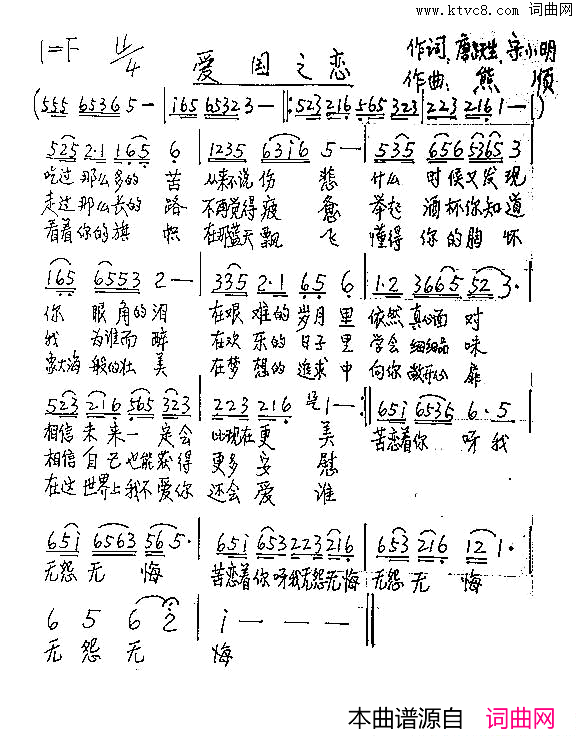 www.ktvc8.com 词曲网
1=F 4/4
爱国之恋
作词 宋小明
作曲 熊
(555 65365- | i65 65323- |: 523216 565323 | 223216 1-)
525 2·1 165 6 | 1235 63i6 5- | 535 656 5365 3
吃过那么多的苦 从来不说伤悲 什么时候又发现
走过那么长的路 不再觉得疲惫 举起酒杯你知道
看着你的旗帜 在那蓝天飘飞 懂得你的胸怀
165 6553 2- | 335 2·1 65 6 | 1·2 36655 52 3·
你眼角的泪 在艰难的岁月里 依然真心面对
我为谁而醉 在欢乐的日子里 学会细细品味
象大海般的壮美 在梦想的追求中 向你敞开心扉
523 216 565 323 | 223 216 1- :| 65i 6535 6·5
相信未来一定会 比现在更美 苦恋着你呀我
相信自己也能获得 更多安慰
在这世界上我不爱你 还会爱谁
65i 6563 565· | 65i 653 223 216 | 653 216 12 1·
无怨无悔 苦恋着你呀我无怨无悔 无怨无悔
6 5 6 2 | i - - - ||
无怨无悔
本曲谱源自 词曲网